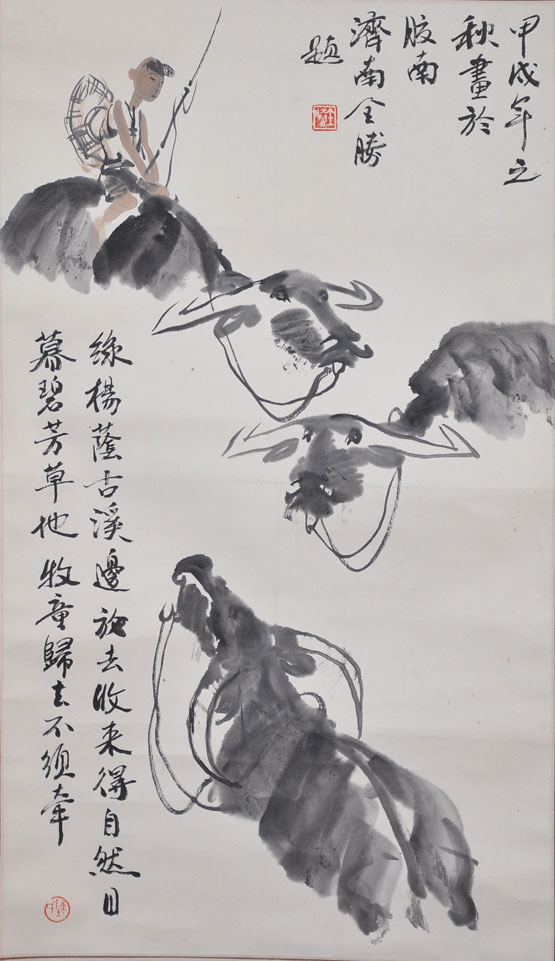 甲戌年之
秋畫於
胶南
濟南全勝
題
綠楊蔭古溪邊放去收来得自然日
暮碧芳草地牧童歸去不須牽